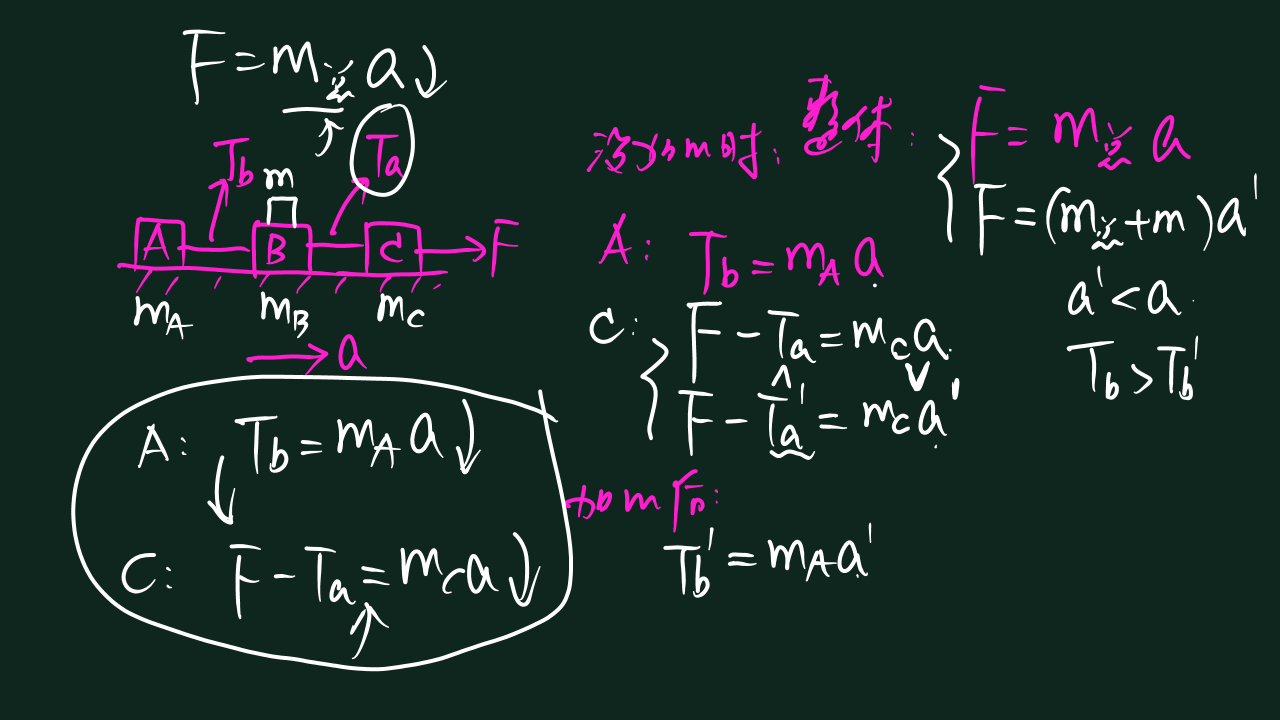 F = m总 a ↓
Tb
m
Ta
A
B
C
F
mA
mB
mC
a
A: Tb = mA a ↓
C: F - Ta = mC a ↓
没加m时: 整体:
F = m总 a
F = (m总 + m) a'
a' < a
Tb > Tb'
A: Tb = mA a
C: F - Ta = mC a
F - Ta' = mC a'
加m后:
Tb' = mA a'